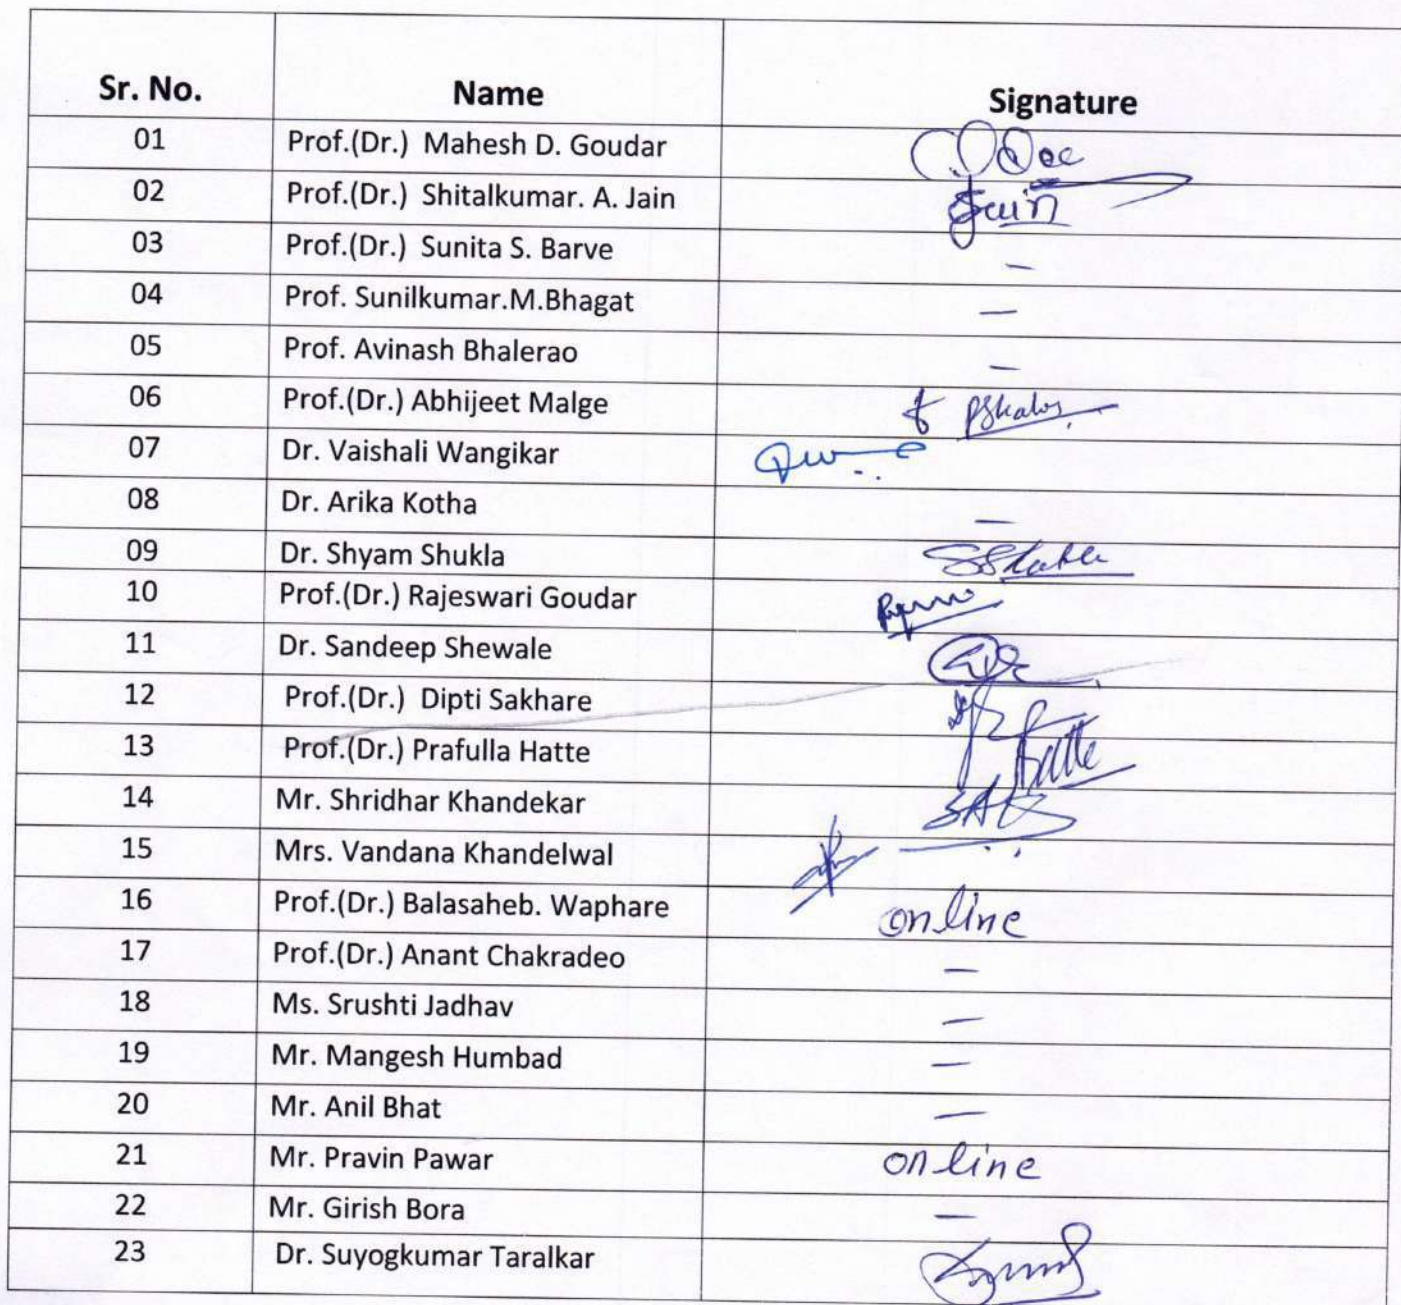 Sr. No. Name Signature
01 Prof.(Dr.) Mahesh D. Goudar
02 Prof.(Dr.) Shitalkumar. A. Jain Jain
03 Prof.(Dr.) Sunita S. Barve –
04 Prof. Sunilkumar.M.Bhagat –
05 Prof. Avinash Bhalerao –
06 Prof.(Dr.) Abhijeet Malge
07 Dr. Vaishali Wangikar
08 Dr. Arika Kotha –
09 Dr. Shyam Shukla
10 Prof.(Dr.) Rajeswari Goudar
11 Dr. Sandeep Shewale
12 Prof.(Dr.) Dipti Sakhare
13 Prof.(Dr.) Prafulla Hatte
14 Mr. Shridhar Khandekar
15 Mrs. Vandana Khandelwal
16 Prof.(Dr.) Balasaheb. Waphare online
17 Prof.(Dr.) Anant Chakradeo –
18 Ms. Srushti Jadhav –
19 Mr. Mangesh Humbad –
20 Mr. Anil Bhat –
21 Mr. Pravin Pawar online
22 Mr. Girish Bora –
23 Dr. Suyogkumar Taralkar